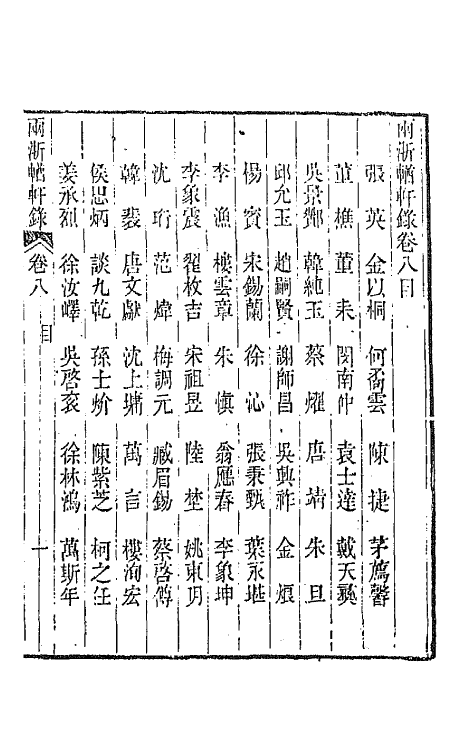 兩浙輶軒錄卷八目
張英 金以桐 何喬雲 陳捷 茅薦馨
董樵 董耒 閔南仲 袁士達 戴天
吳景鄭 韓純玉 蔡燿 唐靖 朱旦
邱允玉 趙嗣賢 謝師昌 吳興祚 金烺
楊賓 宋錫蘭 徐沁 張秉甄 葉永堪
李漁 樓雲章 朱慎 翁應春 李象坤
李象震 翟枚吉 宋祖昱 陸埜 姚東明
沈珩 范煒 梅調元 臧眉錫 蔡啓僔
韓裴 唐文獻 沈上墉 萬言 樓洵宏
侯思炳 談九乾 孫士炌 陳紫芝 柯之任
姜承烈 徐汝嶧 吳啓衮 徐林鴻 萬斯年
兩浙輶軒錄 卷八 目 一